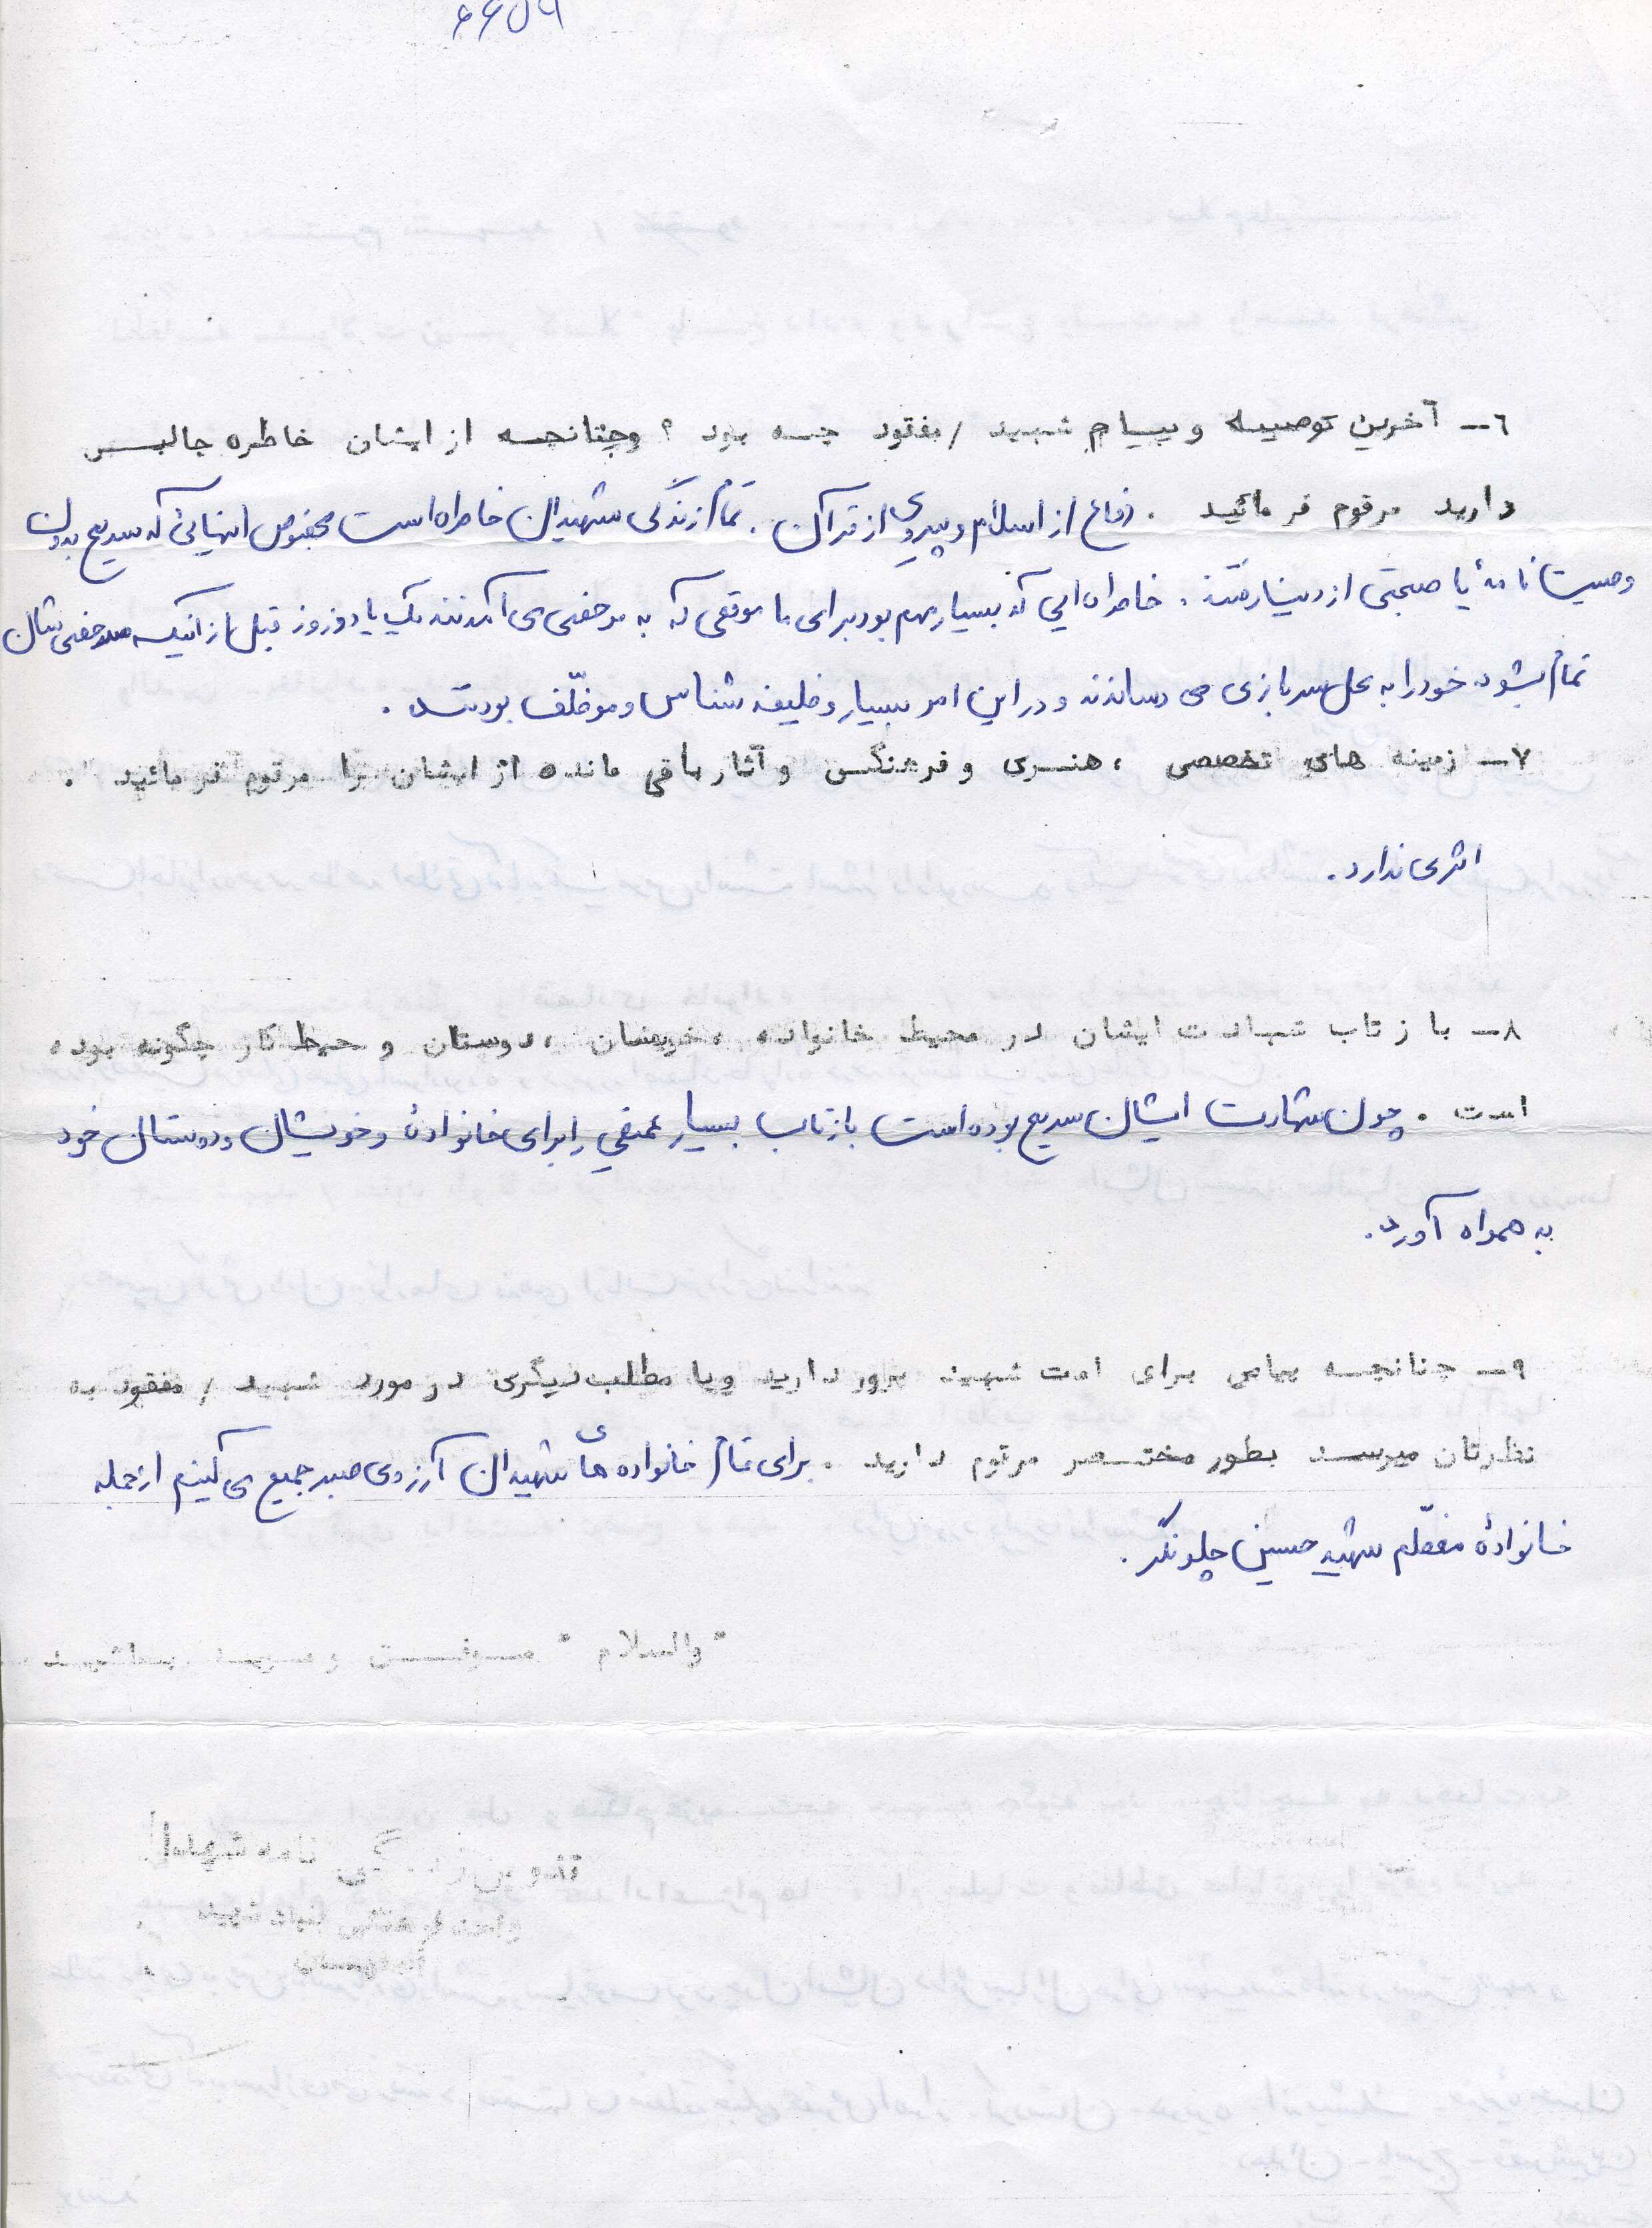 ۶ــ آخرین توصیه و پیام شهید / مفقود چه بود ؟ وچنانچه از ایشان خاطره جالبی
دارید مرقوم فرمائید . دفاع از اسلام و پیروی از قرآن . تمام زندگی شهیدان خاطره است بخصوص انهایی که سریع بدون
وصیت نامهٔ یا صحبتی از دنیا رفتند . خاطره ایی که بسیار مهم بود برای ما موقعی که به مرخصی می آمدند یک یا دو روز قبل از آنیکه مرخصی شان
تمام بشود خود را به محل سربازی می رساندند و در این امر بسیار وظیفه شناس و موظّف بودند .
۷ــ زمینه های تخصصی ، هنری و فرهنگی و آثار باقی مانده از ایشان را مرقوم فرمائید .
اثری ندارد .
۸ــ بازتاب شهادت ایشان در محیط خانواده ، خویشان ، دوستان و محیط کار چگونه بوده
است . چون شهادت ایشان سریع بوده است بازتاب بسیار عمیقی را برای خانوادهٔ و خویشان و دوستان خود
به همراه آورد .
۹ــ چنانچه پیامی برای امت شهید پرور دارید ویا مطلب دیگری در مورد شهید / مفقود به
نظرتان میرسد بطور مختصر مرقوم دارید . برای تمام خانواده های شهیدان آرزوی صبر جمیع می کنیم از جمله
خانوادهٔ معظّم شهید حسین چلونگر .
" والسلام " موفق و مؤید باشید